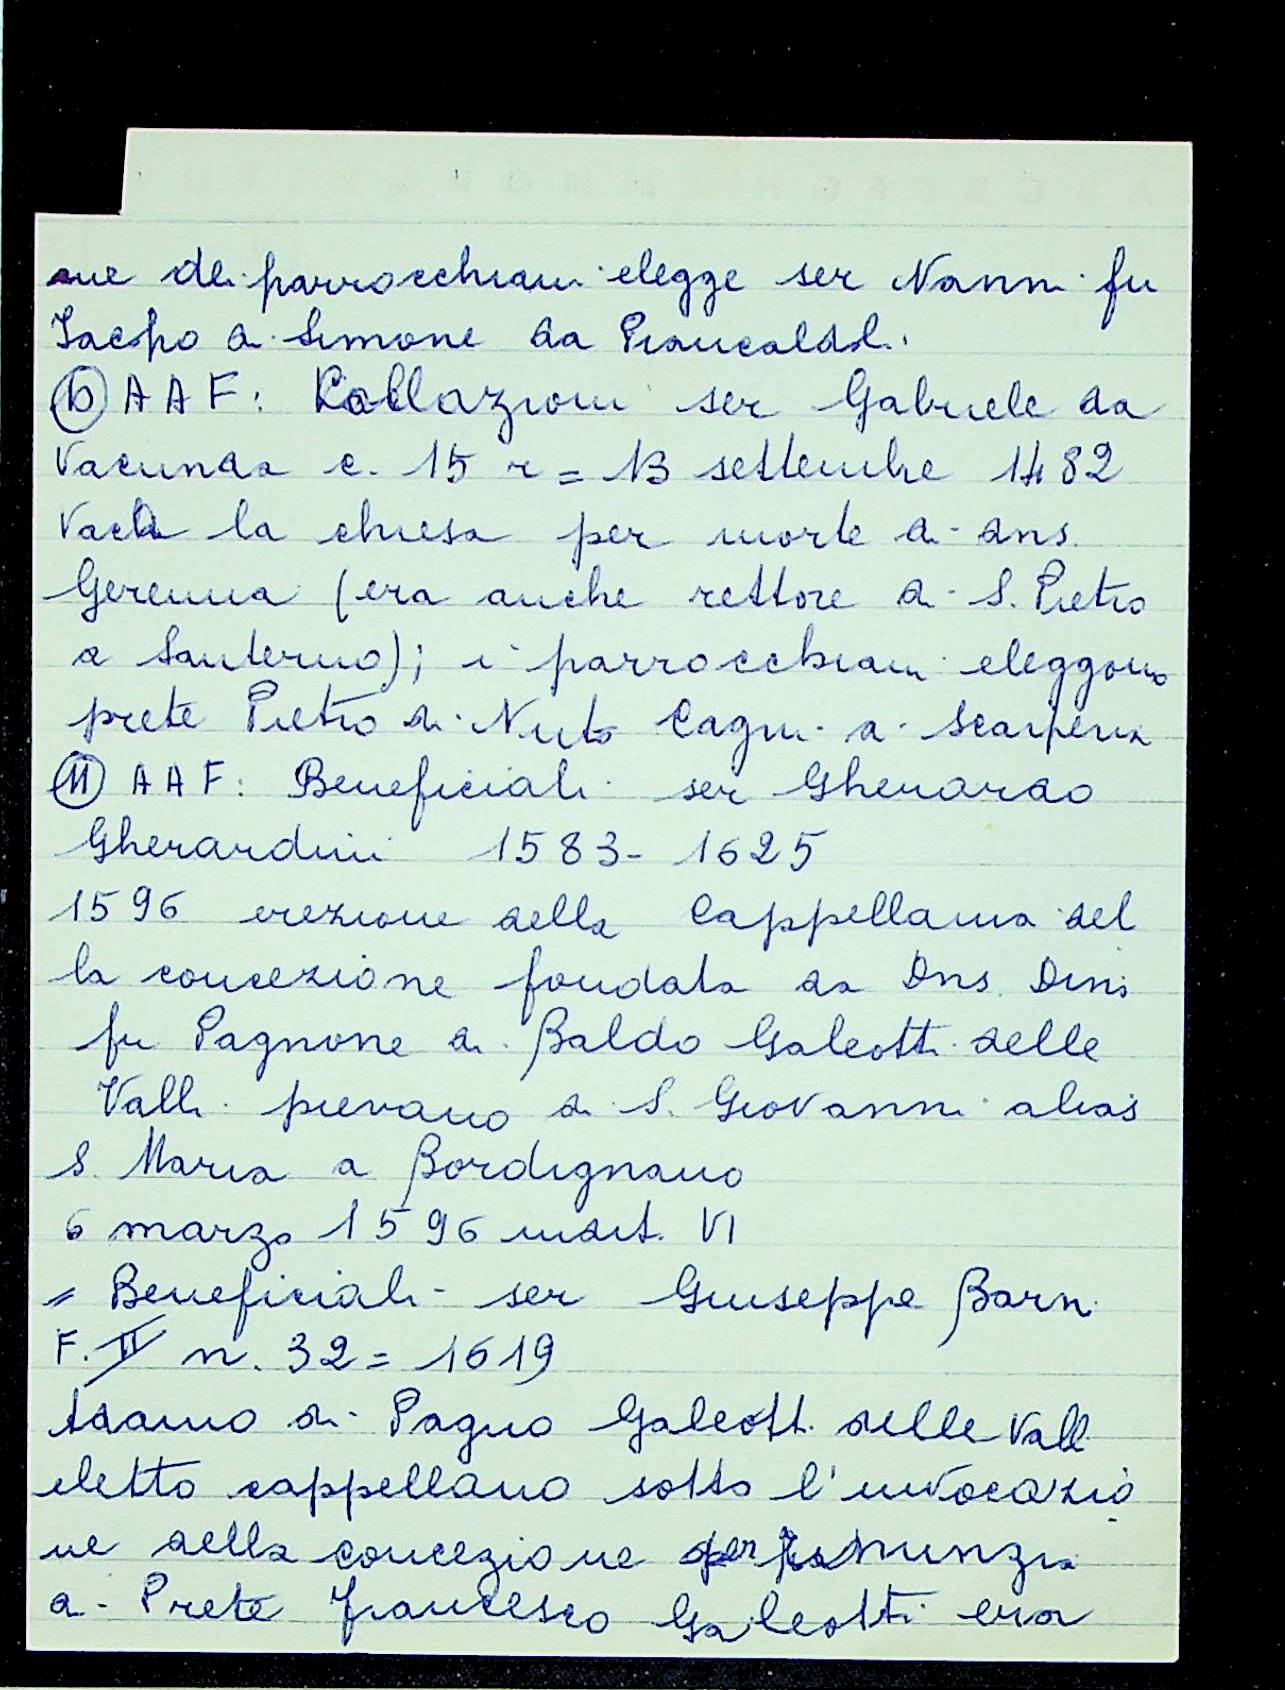 ne dei parrocchiani elegge ser Nanni fu
Jacopo di Simone da Piancaldoli.
(10) AAF: Collazioni ser Gabriele da
Vacunda c. 15 r = 13 settembre 1482
Vaca la chiesa per morte di dns.
Geremia (era anche rettore di S. Pietro
a Santerno); i parrocchiani eleggono
prete Pietro di Nuto Cagni di Scarperia
(11) AAF: Beneficiali ser Gherardo
Gherardini 1583-1625
1596 erezione della Cappellania del
la concezione fondata da Dns. Dino
fu Pagnone di Baldo Galeotti delle
Valli pievano di S. Giovanni alias
S. Maria a Bordignano
6 marzo 1596 indit. VI
= Beneficiali ser Giuseppe Barni
F. II n. 32 = 1619
Adamo di Pagno Galeotti delle Valli
eletto cappellano sotto l'invocazio
ne della concezione per rinunzia
di Prete Francesco Galeotti era